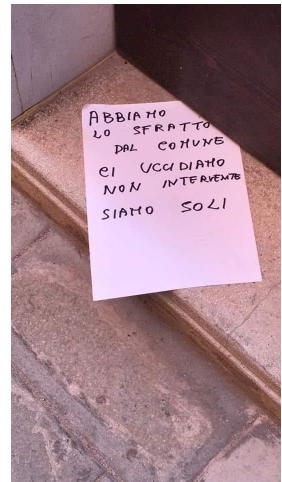 ABBIAMO
LO SFRATTO
DAL COMUNE
CI UCCIDIAMO
NON INTERVENITE
SIAMO SOLI